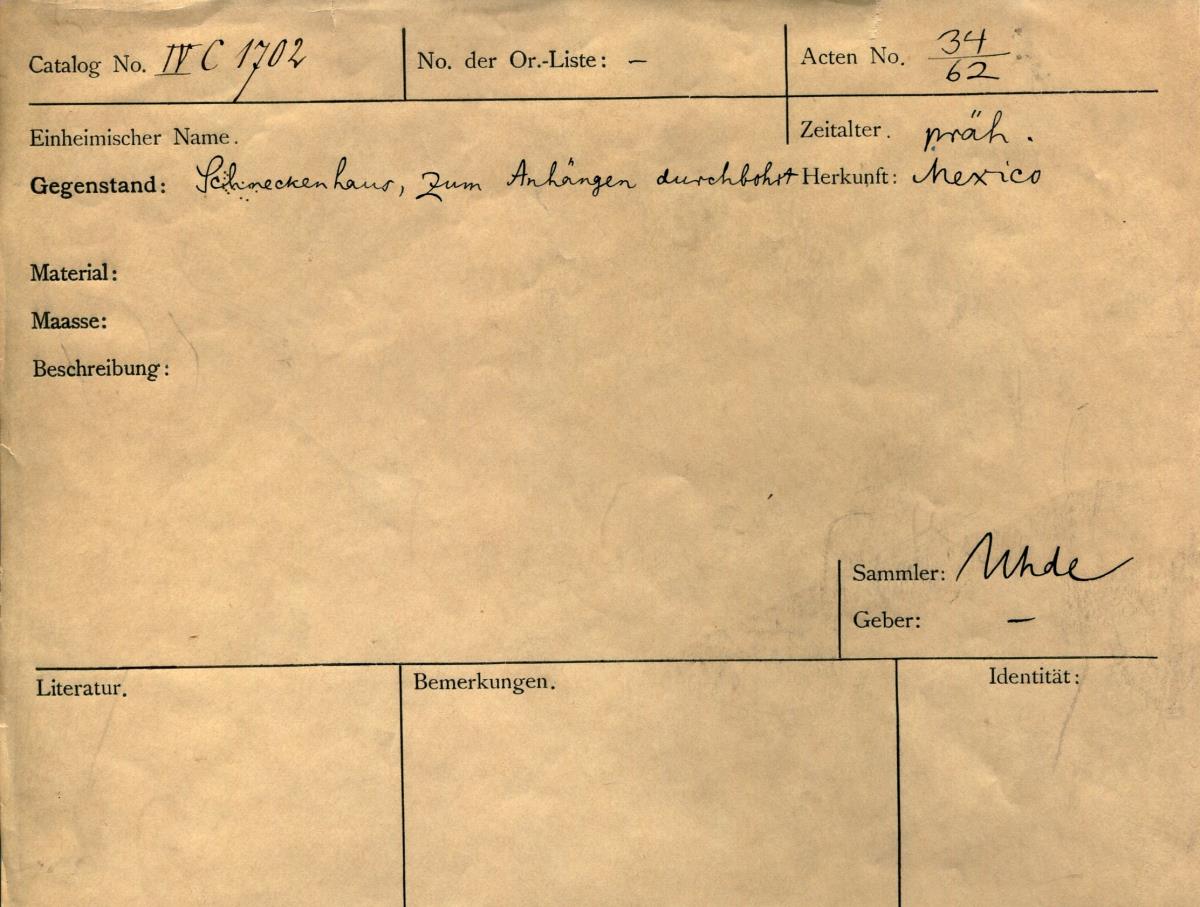 Catalog No. IV C 1702 No. der Or.-Liste: — Acten No. 34/62
Einheimischer Name. Zeitalter. präh.
Gegenstand: Schneckenhaus, zum Anhängen durchbohrt Herkunft: Mexico
Material:
Maasse:
Beschreibung:
Sammler: Uhde
Geber: —
Literatur. Bemerkungen. Identität: